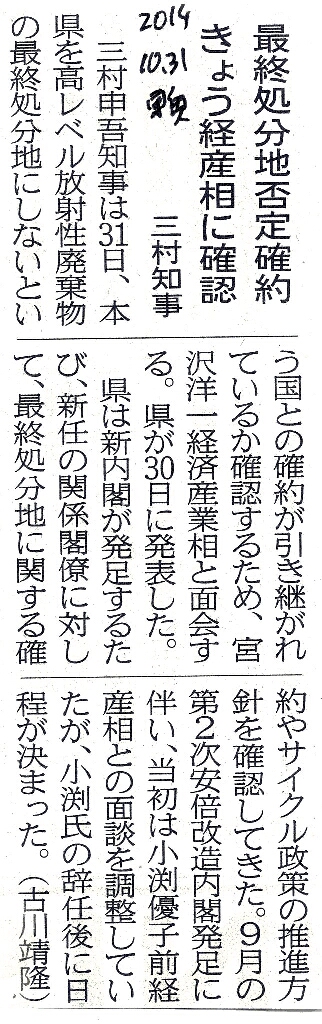 最終処分地否定確約
きょう経産相に確認
三村知事
2014
10.31
三村申吾知事は31日、本
県を高レベル放射性廃棄物
の最終処分地にしないとい
う国との確約が引き継がれ
ているか確認するため、宮
沢洋一経済産業相と面会す
る。県が30日に発表した。
県は新内閣が発足するた
び、新任の関係閣僚に対し
て、最終処分地に関する確
約やサイクル政策の推進方
針を確認してきた。9月の
第2次安倍改造内閣発足に
伴い、当初は小渕優子前経
産相との面談を調整してい
たが、小渕氏の辞任後に日
程が決まった。（古川靖隆）